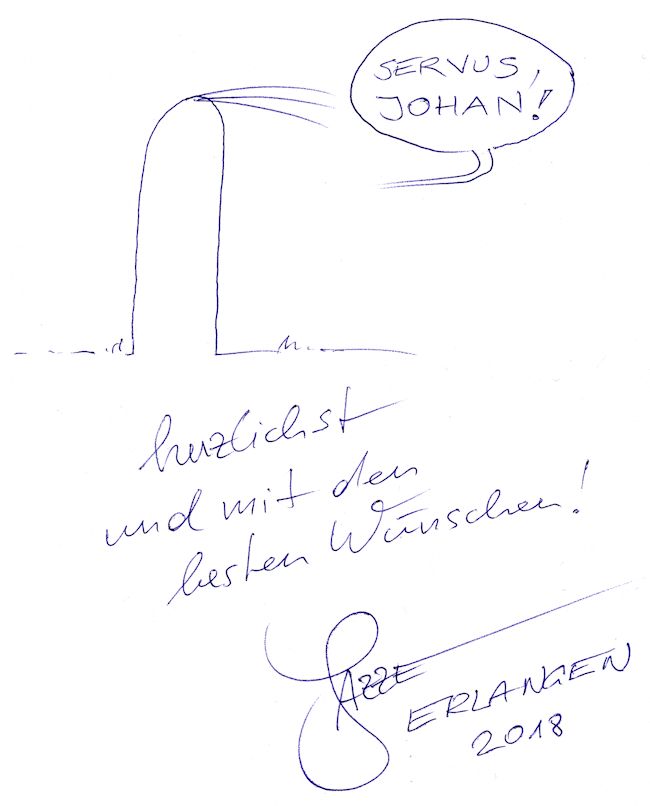 SERVUS,
JOHAN!
herzlichst
und mit den
besten Wünschen!
ERLANGEN
2018